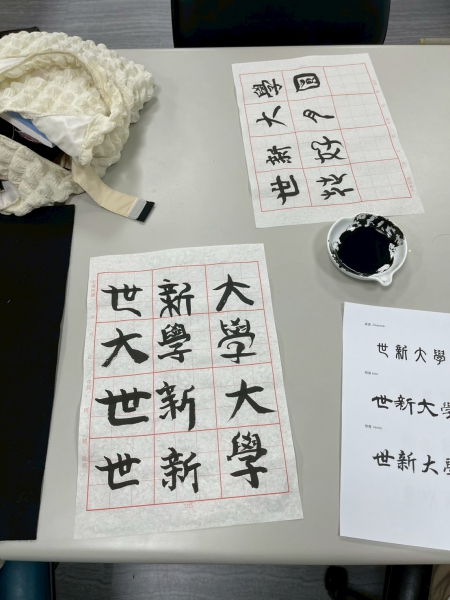 世新大學
好
世新大
大學學
世新大
世新學
世新大學
世新大學
世新大學